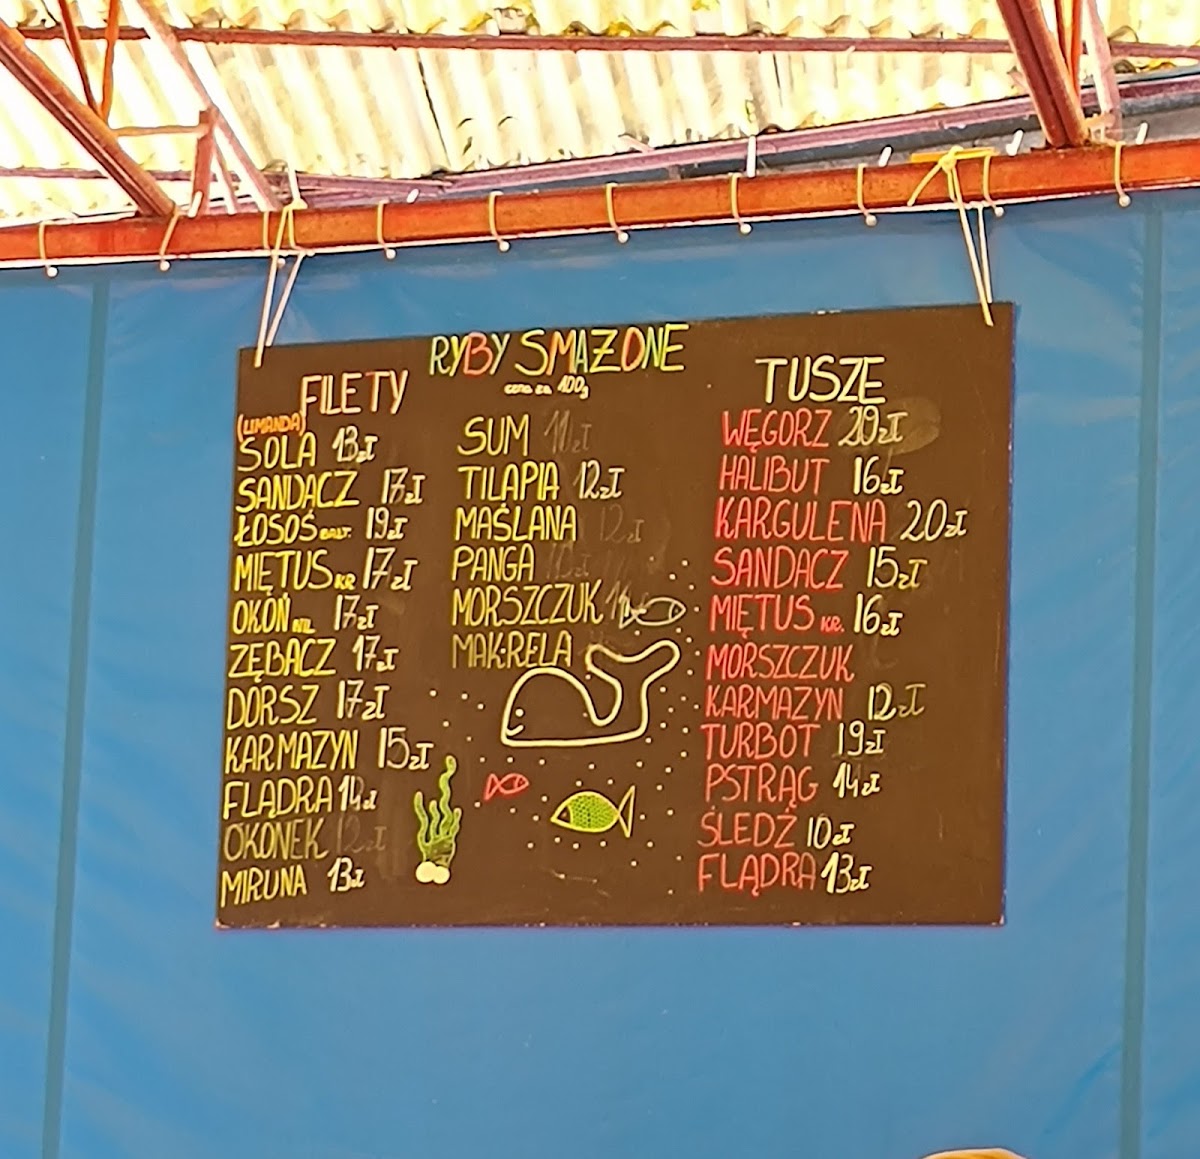 RYBY SMAŻONE
cena za 100g
FILETY
(LIMANDA)
SOLA 13zł
SANDACZ 17zł
ŁOSOŚ BAŁT. 19zł
MIĘTUS KR 17zł
OKOŃ NIL 17zł
ZĘBACZ 17zł
DORSZ 17zł
KARMAZYN 15zł
FLĄDRA 14zł
OKONEK 12zł
MIRUNA 13zł
SUM 11zł
TILAPIA 12zł
MAŚLANA 12zł
PANGA
MORSZCZUK
MAKRELA
TUSZE
WĘGORZ 20zł
HALIBUT 16zł
KARGULENA 20zł
SANDACZ 15zł
MIĘTUS KR. 16zł
MORSZCZUK
KARMAZYN 12zł
TURBOT 19zł
PSTRĄG 14zł
ŚLEDŹ 10zł
FLĄDRA 13zł